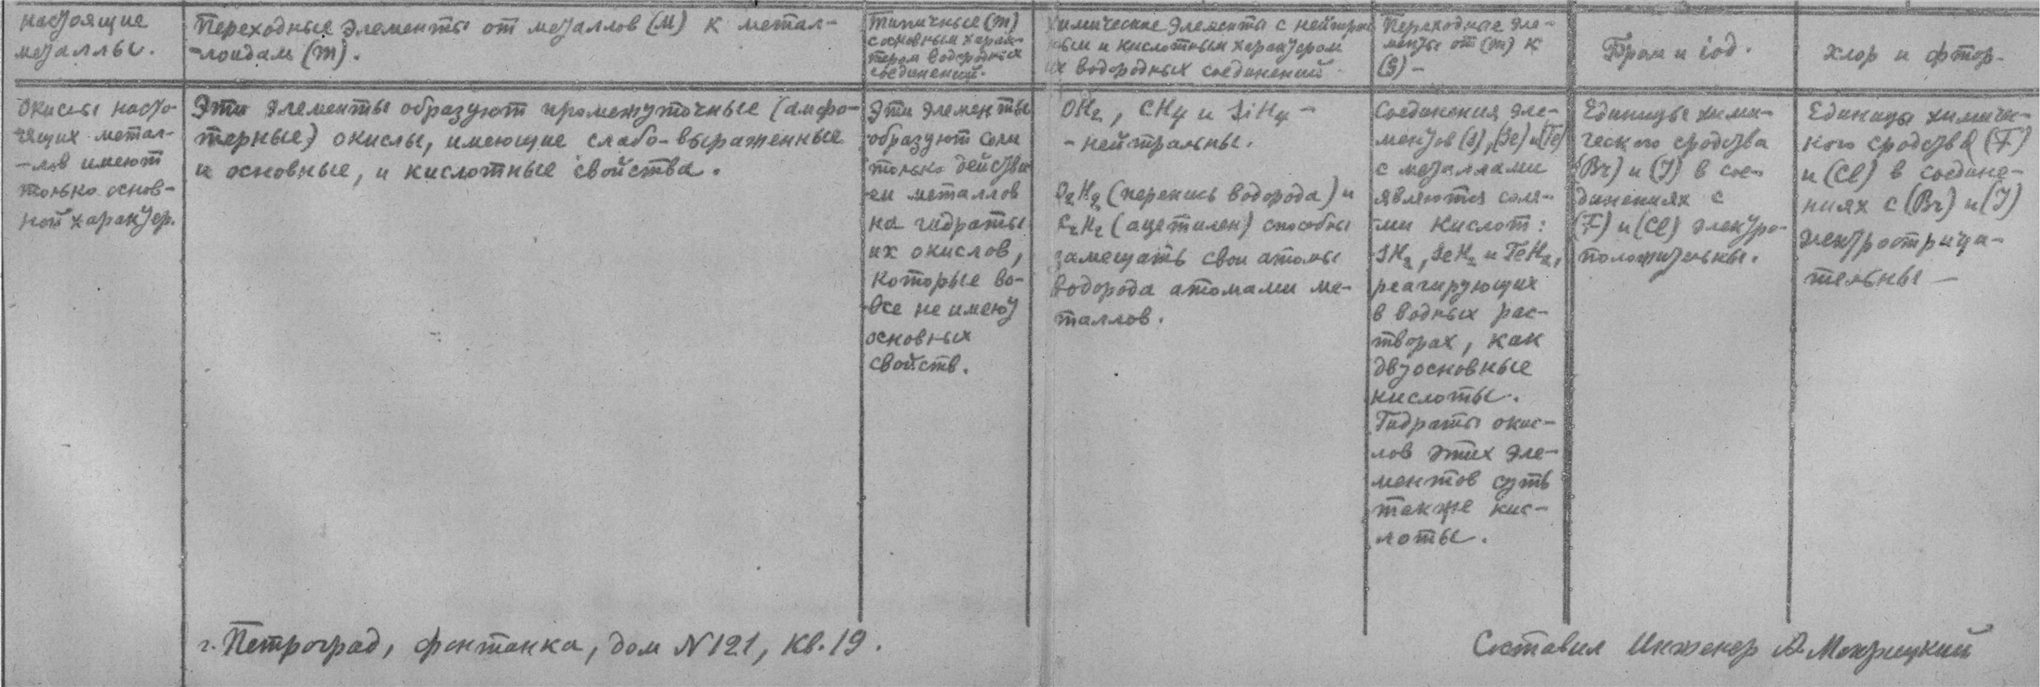 Настоящие
металлы.
Переходные элементы от металлов (М) к метал-
-лоидам (m).
Типичные (m)
с основным харак-
тером водородных
соединений.
Химические элементы с нейтраль
ным и кислотным характером
их водородных соединений
Переходные эле-
менты от (m) к
(S) —
Бром и iод.
Хлор и фтор.
Окислы насто-
ящих метал-
-лов имеют
только основ-
ной характер.
Эти элементы образуют промежуточные (амфо-
терные) окислы, имеющие слабо-выраженные
и основные, и кислотные свойства.
Эти элементы
образуют соли
только действи
ем металлов
на гидраты
их окислов,
которые во-
все не имеют
основных
свойств.
OH₂, CH₄ и SiH₄ —
- нейтральны.
O₂H₂ (перекись водорода) и
C₂H₂ (ацетилен) способны
замещать свои атомы
водорода атомами ме-
таллов.
Соединения эле-
ментов (S), (Se) и (Te)
с металлами
являются соля-
ми кислот:
SH₂, SeH₂ и TeH₂,
реагирующих
в водных рас-
творах, как
двуосновные
кислоты.
Гидраты окис-
лов этих эле-
ментов суть
также кис-
лоты.
Единицы хими-
ческого сродства
(Br) и (J) в сое-
динениях с
(F) и (Cl) электро-
положительны.
Единицы химиче-
кого сродства (F)
и (Cl) в соедине-
ниях с (Br) и (J)
электроотрица-
тельны —
г. Петроград, Фонтанка, дом N121, кв. 19.
Составил Инженер А. Мокрицкий